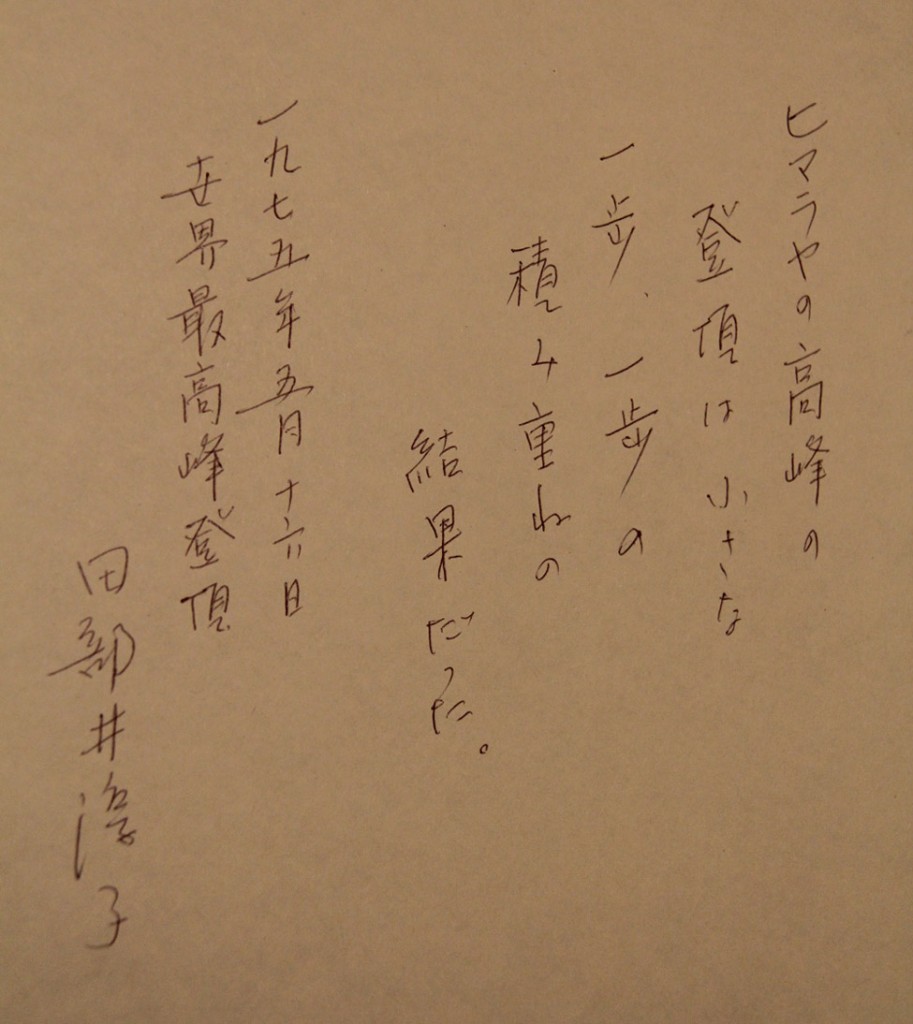 ヒマラヤの高峰の
登頂は小さな
一歩、一歩の
積み重ねの
結果だった。
一九七五年五月十六日
世界最高峰登頂
田部井淳子